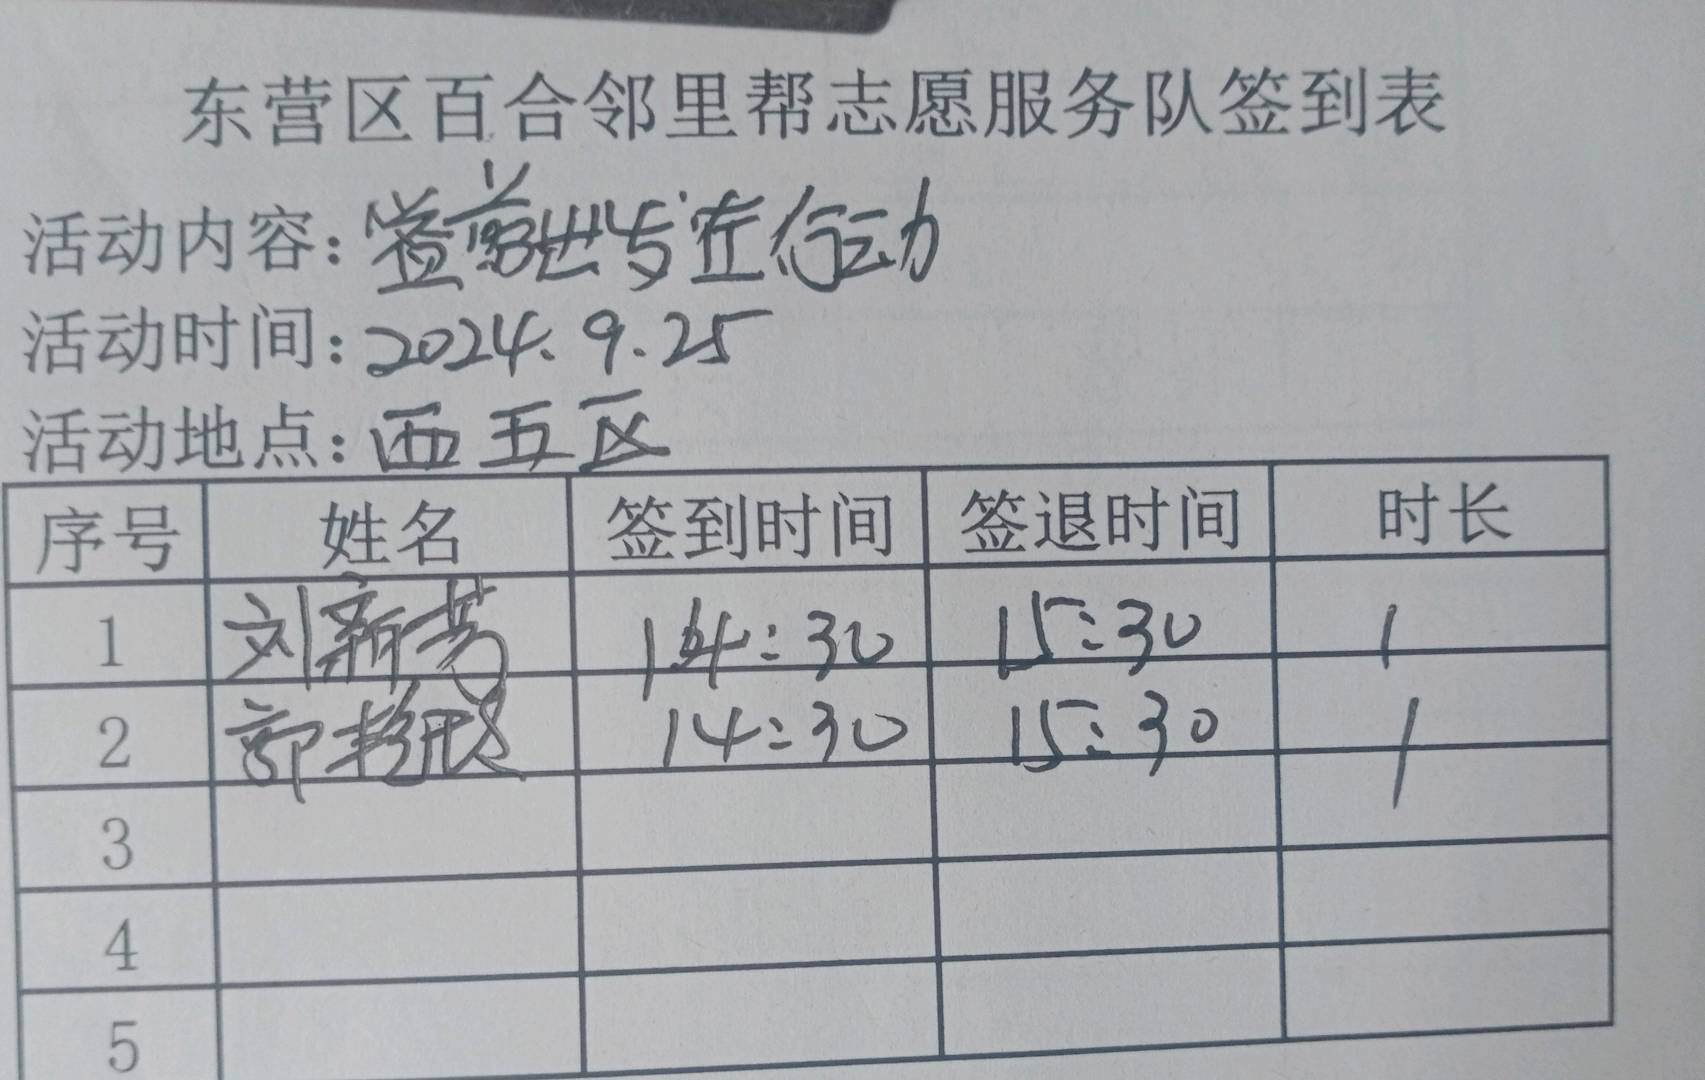 东营区百合邻里帮志愿服务队签到表
活动内容: 益 世 行动
活动时间: 2024.9.25
活动地点: 西五区
序号 姓名 签到时间 签退时间 时长
1 刘新芳 14:30 15:30 1
2 郭 14:30 15:30 1
3
4
5